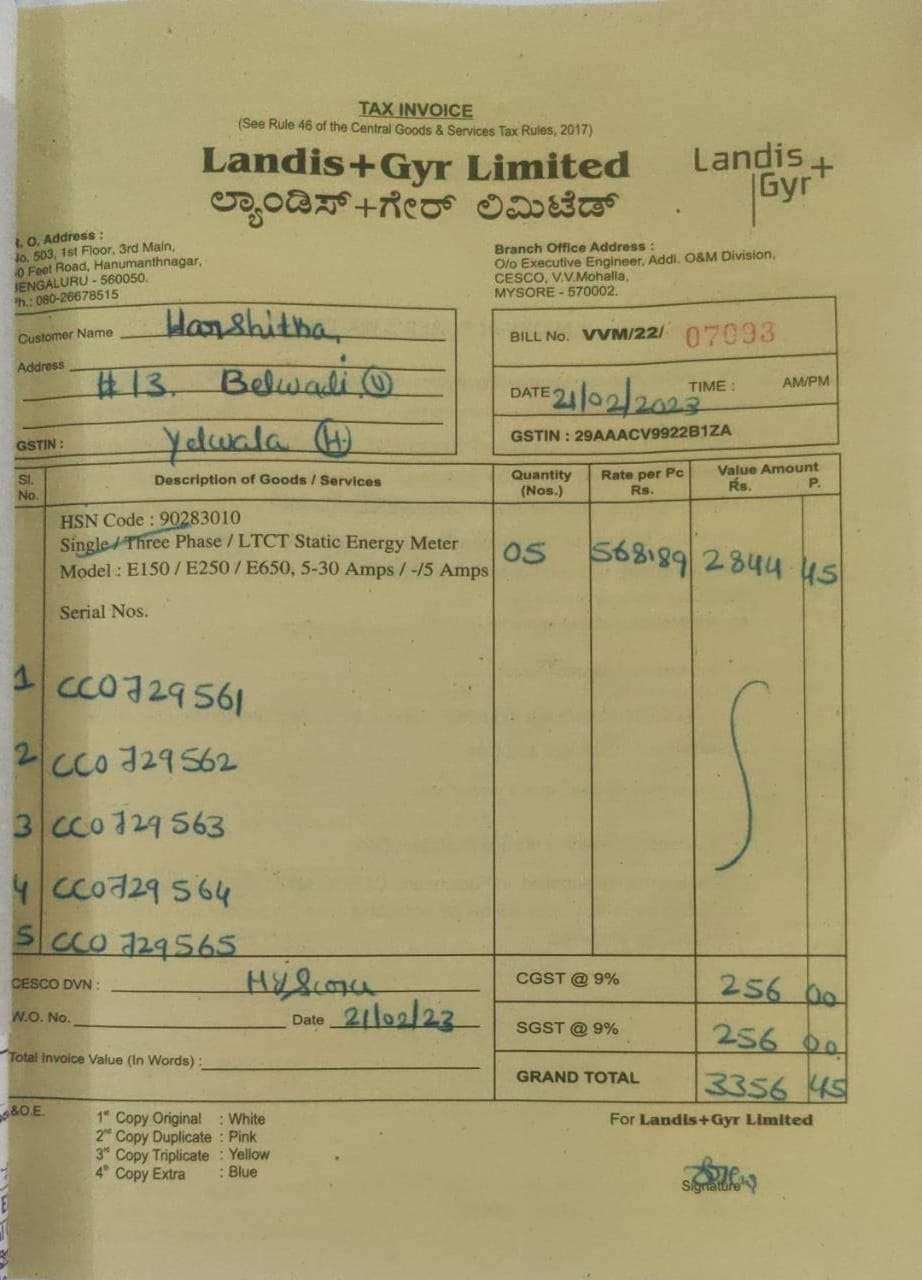 TAX INVOICE
(See Rule 46 of the Central Goods & Services Tax Rules, 2017)
Landis+Gyr Limited
ಲ್ಯಾಂಡಿಸ್+ಗೇರ್ ಲಿಮಿಟೆಡ್
Landis+
Gyr
R. O. Address :
No. 503, 1st Floor, 3rd Main,
0 Feet Road, Hanumanthnagar,
BENGALURU - 560050.
Ph.: 080-26678515
Branch Office Address :
O/o Executive Engineer, Addl. O&M Division,
CESCO, V.V.Mohalla,
MYSORE - 570002.
Customer Name Harshitha
Address
#13. Belwadi (V)
Yelwala (H)
GSTIN :
BILL No. VVM/22/ 07093
DATE 21/02/2023 TIME : AM/PM
GSTIN : 29AAACV9922B1ZA
Sl. No. Description of Goods / Services Quantity (Nos.) Rate per Pc Rs. Value Amount Rs. P.
HSN Code : 90283010
Single / Three Phase / LTCT Static Energy Meter
Model : E150 / E250 / E650, 5-30 Amps / -/5 Amps
05 568.89 2844 45
Serial Nos.
1 CC0729561
2 CC0729562
3 CC0729563
4 CC0729564
5 CC0729565
CESCO DVN : Mysore
W.O. No. Date 21/02/23
Total Invoice Value (In Words) :
CGST @ 9% 256 00
SGST @ 9% 256 00
GRAND TOTAL 3356 45
&O.E.
1st Copy Original : White
2nd Copy Duplicate : Pink
3rd Copy Triplicate : Yellow
4th Copy Extra : Blue
For Landis+Gyr Limited
Signature